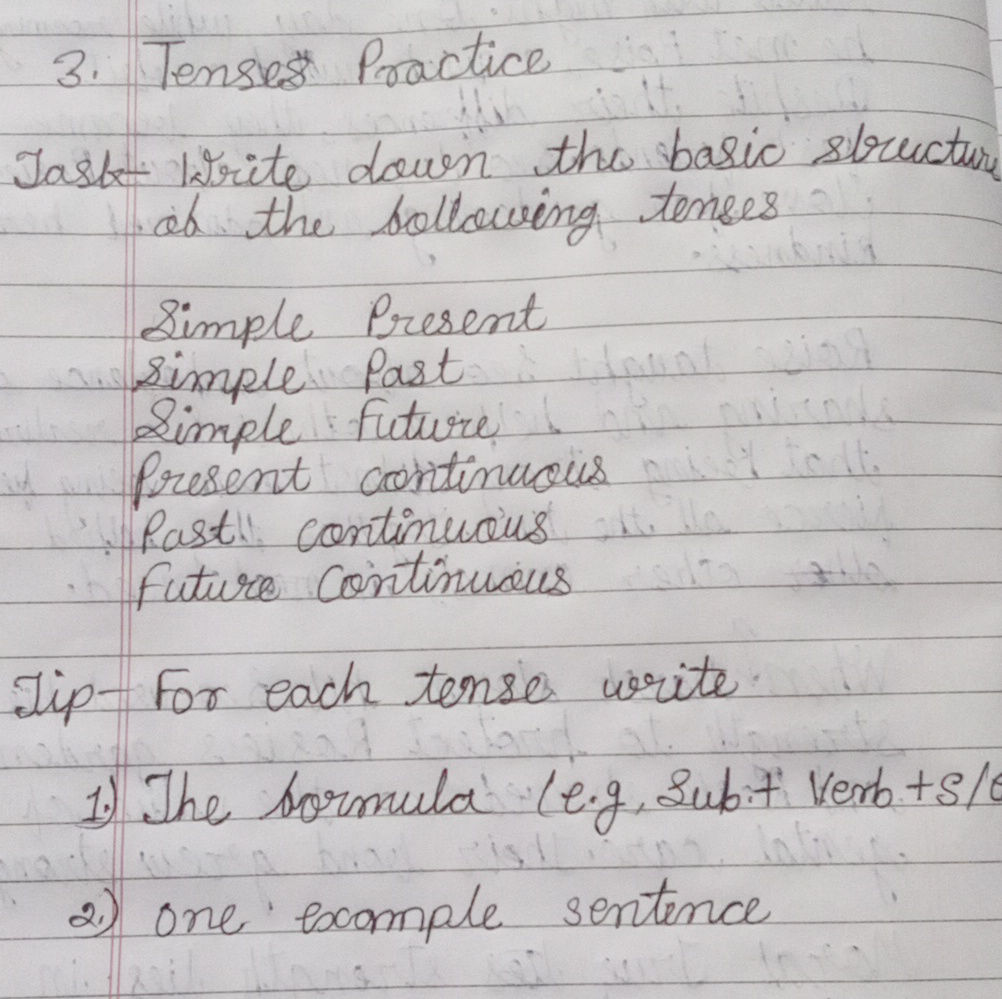 3. Tenses Practice
Task- Write down the basic structure
of the following tenses
Simple Present
Simple Past
Simple Future
Present continuous
Past continuous
Future Continuous
Tip- For each tense write
1.) The formula (e.g, Sub.+ Verb.+s/e
2.) one example sentence